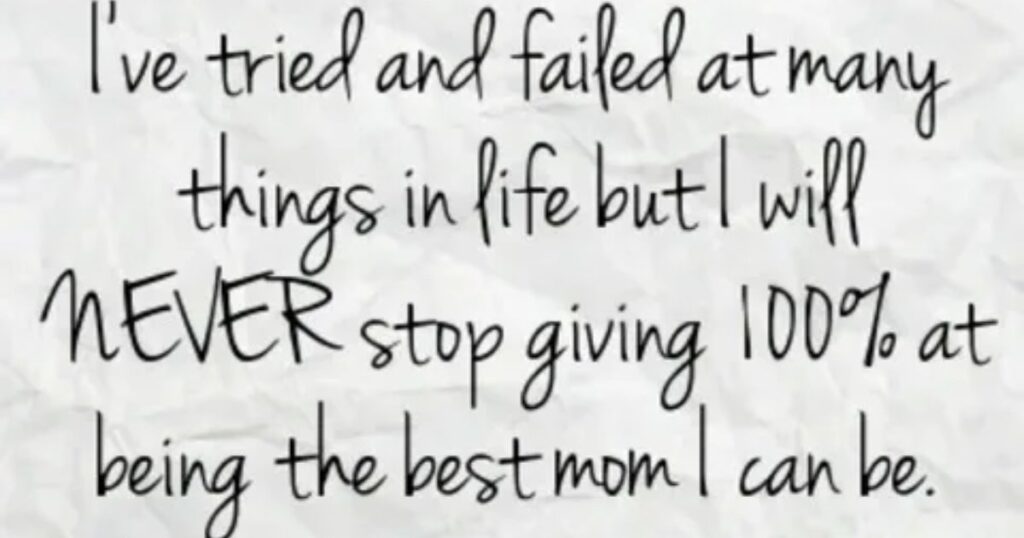 I've tried and failed at many
things in life but I will
NEVER stop giving 100% at
being the best mom I can be.